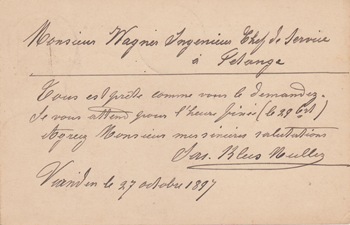 Monsieur Wagner Ingenieur Chef de Service
à Petange
Tous est prête comme vous le demandez.
Je vous attend pour l'heur fixée (le 29 ct)
Agreez Monsieur mes sincères salutations
Jas. Klees Muller
Vianden le 27 octobre 1897